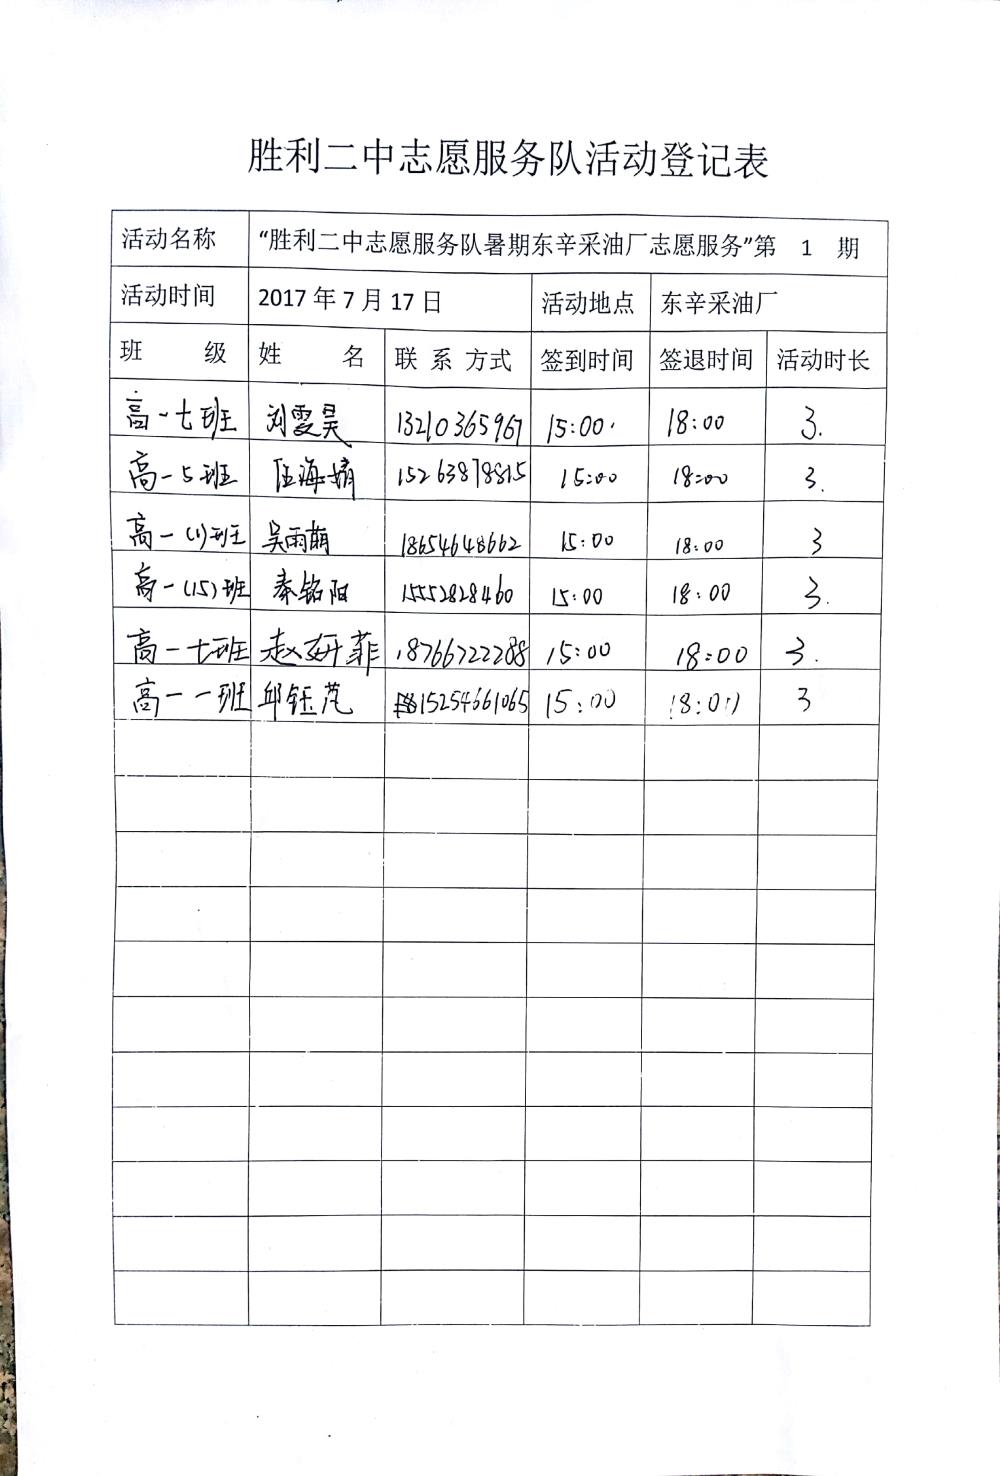 胜利二中志愿服务队活动登记表
活动名称 “胜利二中志愿服务队暑期东辛采油厂志愿服务”第 1 期
活动时间 2017 年 7 月 17 日 活动地点 东辛采油厂
班 级 姓 名 联 系 方式 签到时间 签退时间 活动时长
高一七班 刘雯昊 13210365967 15:00. 18:00 3.
高一5班 海婧 15263878815 15:00 18:00 3.
高一(1)班 吴雨萌 18654648662 15:00 18:00 3
高一(15)班 秦铭阳 15552828460 15:00 18:00 3.
高一七班 赵妍菲 18766722288 15:00 18:00 3.
高一一班 邱钰 15254661065 15:00 18:00 3